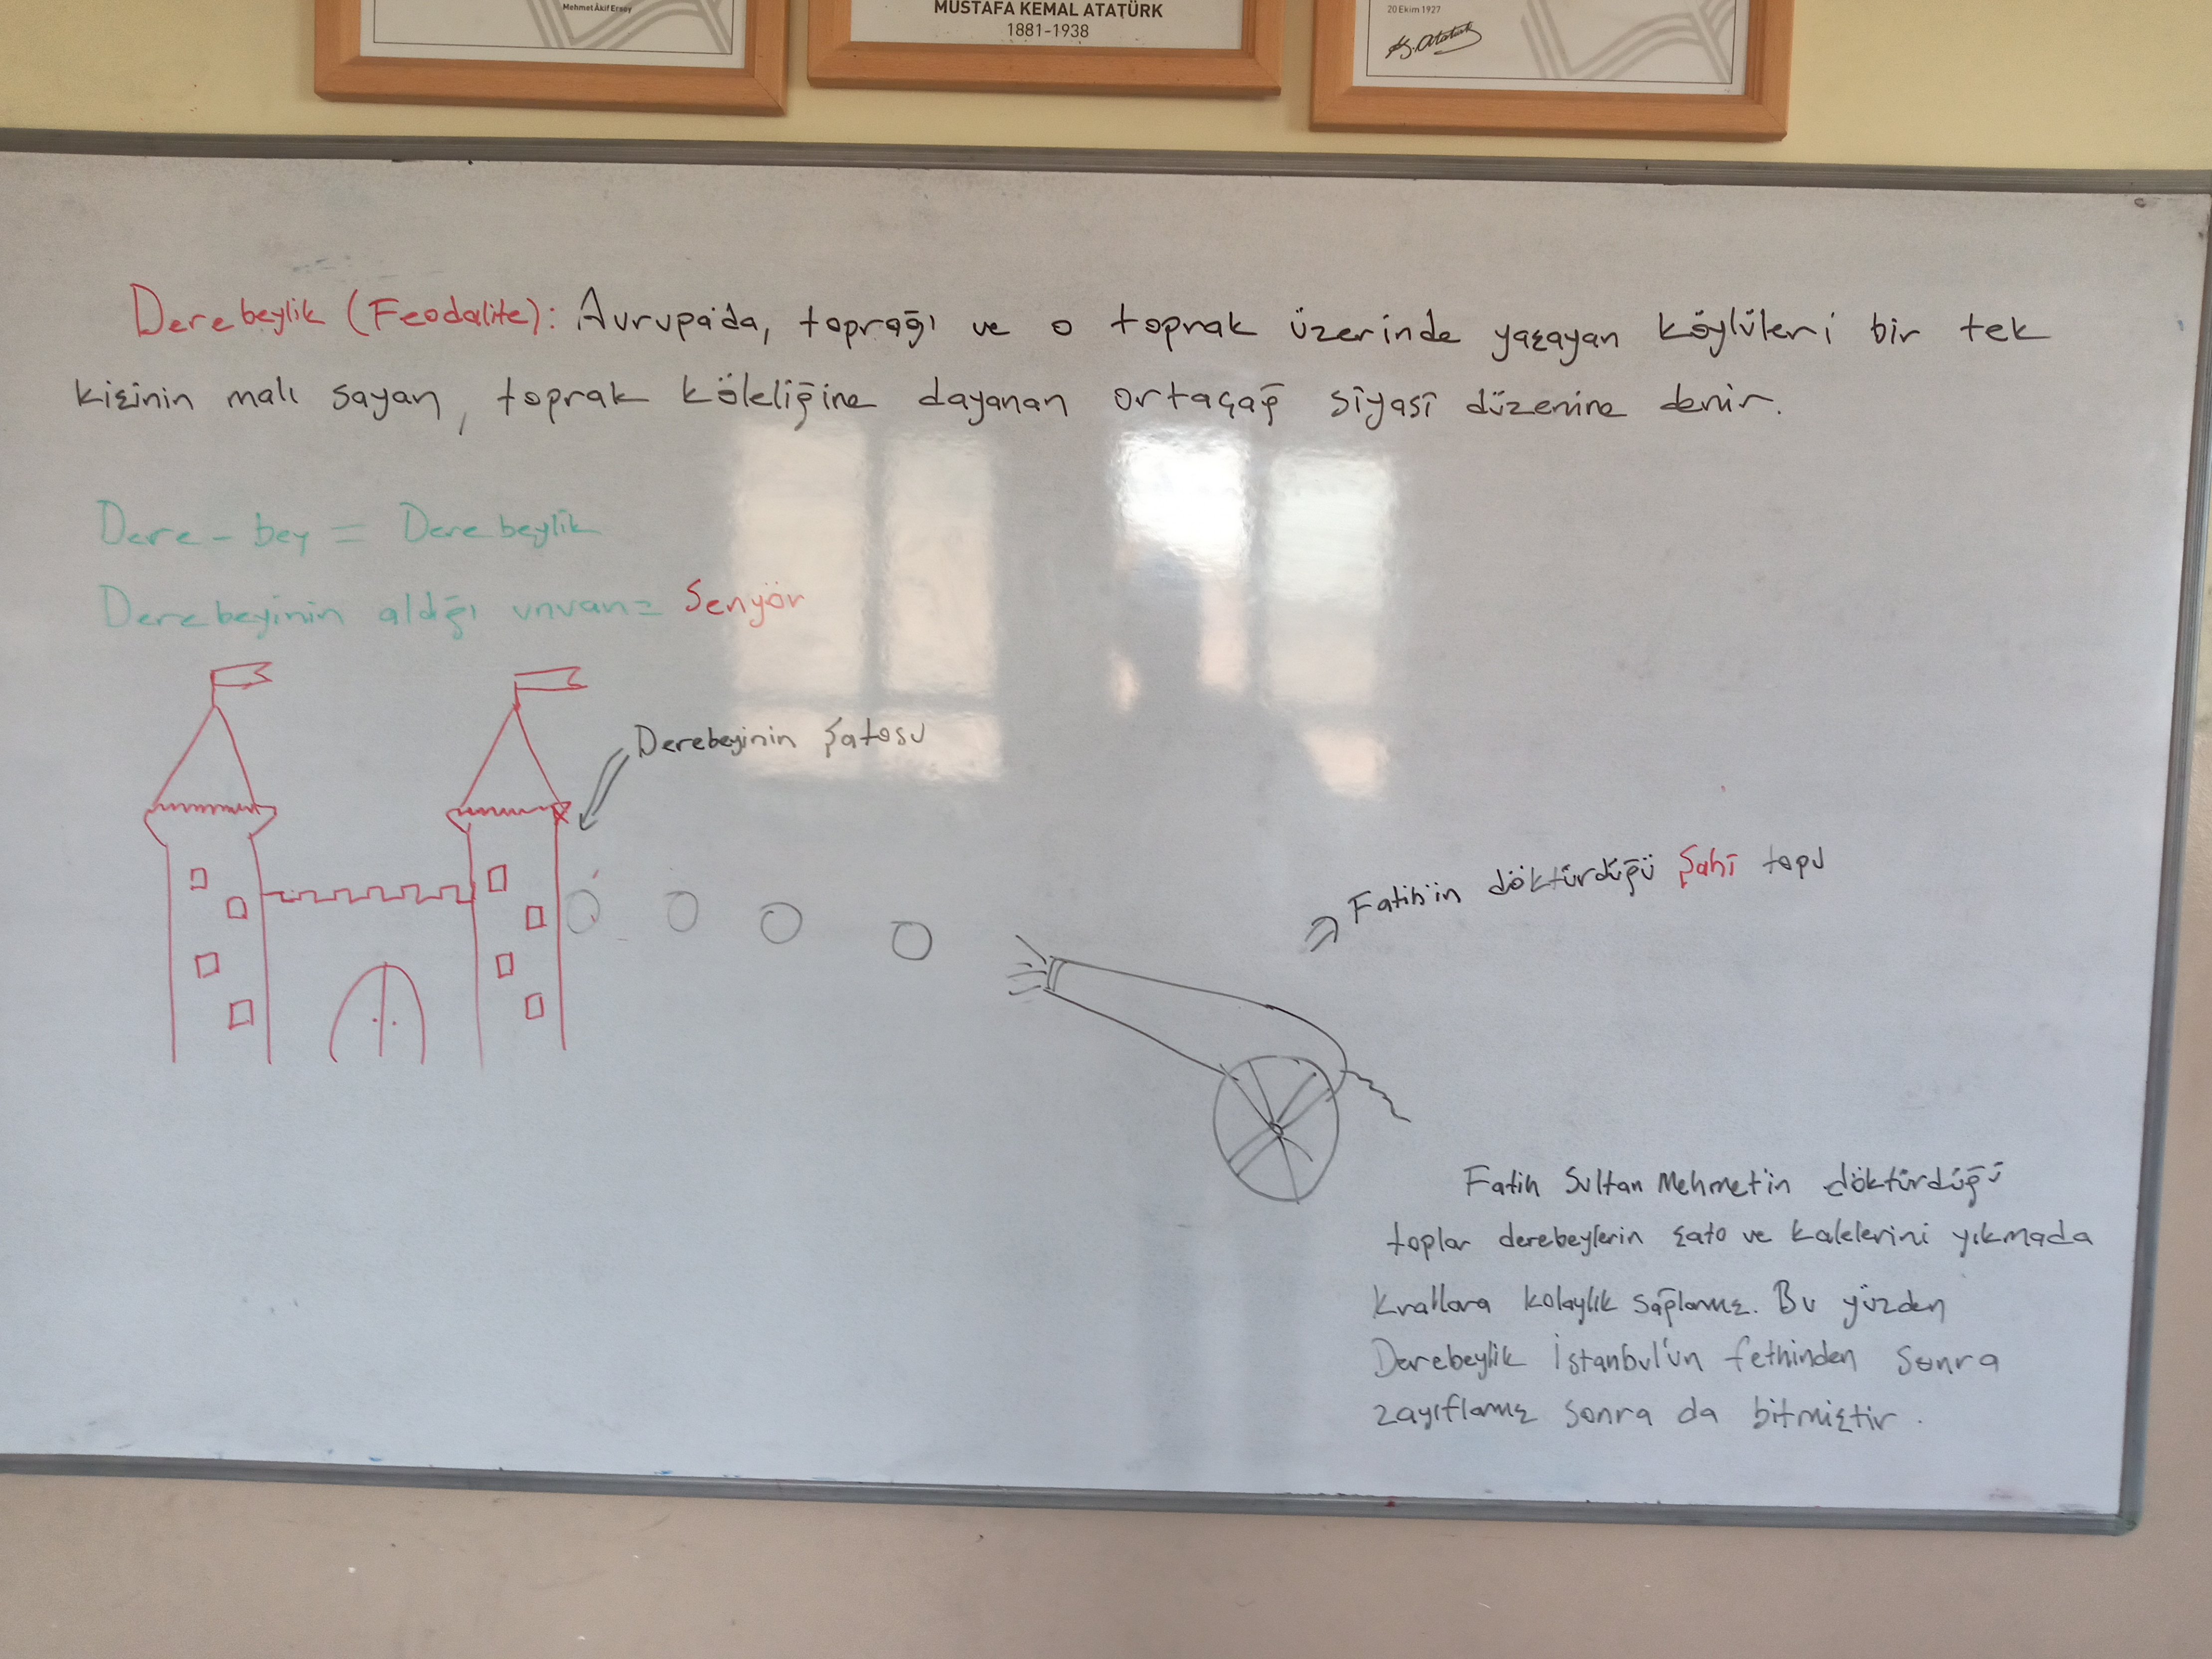 Mehmet Âkif Ersoy
MUSTAFA KEMAL ATATÜRK
1881-1938
20 Ekim 1927
K. Atatürk
Derebeylik (Feodalite): Avrupa'da, toprağı ve o toprak üzerinde yaşayan köylüleri bir tek
kişinin malı sayan, toprak köleliğine dayanan ortaçağ siyasî düzenine denir.
Dere - bey = Derebeylik
Derebeyinin aldığı unvan = Senyör
Derebeyinin Şatosu
Fatih'in döktürdüğü Şahî topu
Fatih Sultan Mehmet'in döktürdüğü
toplar derebeylerin şato ve kalelerini yıkmada
krallara kolaylık sağlamış. Bu yüzden
Derebeylik İstanbul'un fethinden sonra
zayıflamış sonra da bitmiştir.